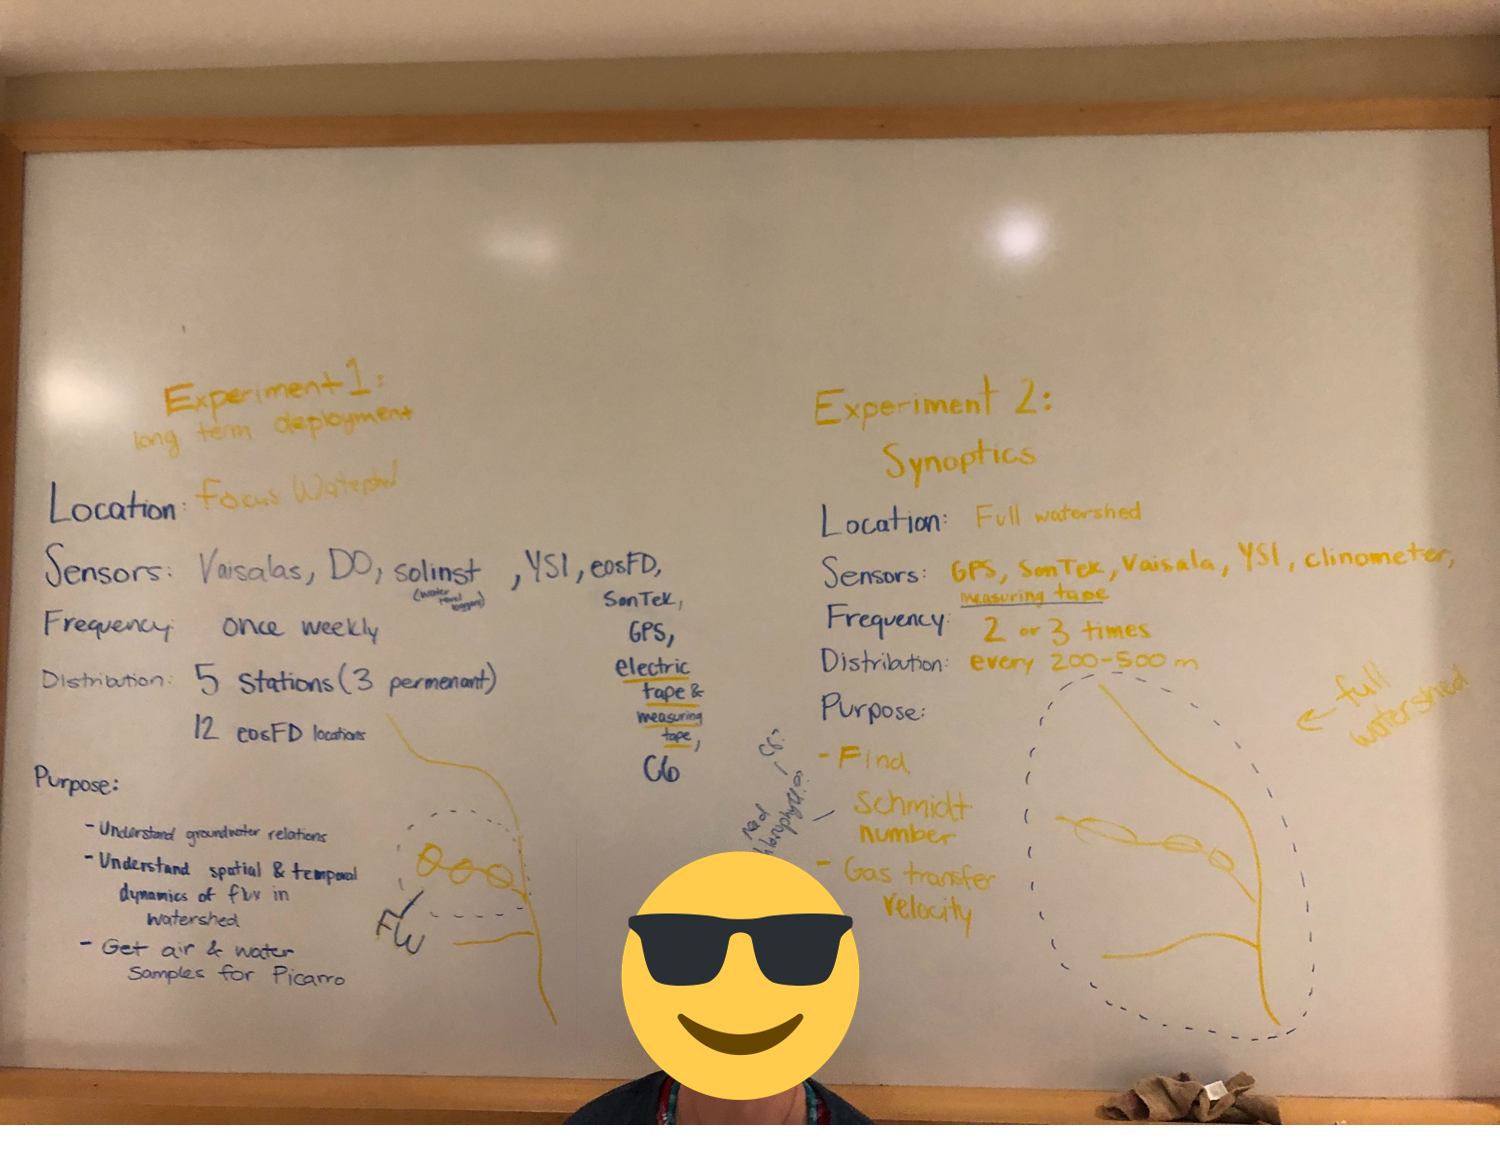 Experiment 1:
long term deployment
Location: Focus Watershed
Sensors: Vaisalas, DO, solinst , YSI, eosFD,
(water level loggers)
SonTek,
GPS,
electric
tape &
measuring
tape,
C6
Frequency: once weekly
Distribution: 5 stations (3 permenant)
12 eosFD locations
Purpose:
- Understand groundwater relations
- Understand spatial & temporal
dynamics of flux in
watershed
- Get air & water
samples for Picarro
FW
Experiment 2:
Synoptics
Location: Full watershed
Sensors: GPS, SonTek, Vaisala, YSI, clinometer,
measuring tape
Frequency: 2 or 3 times
Distribution: every 200-500 m
Purpose:
- Find
schmidt
number
- Gas transfer
velocity
C6:
← full
watershed